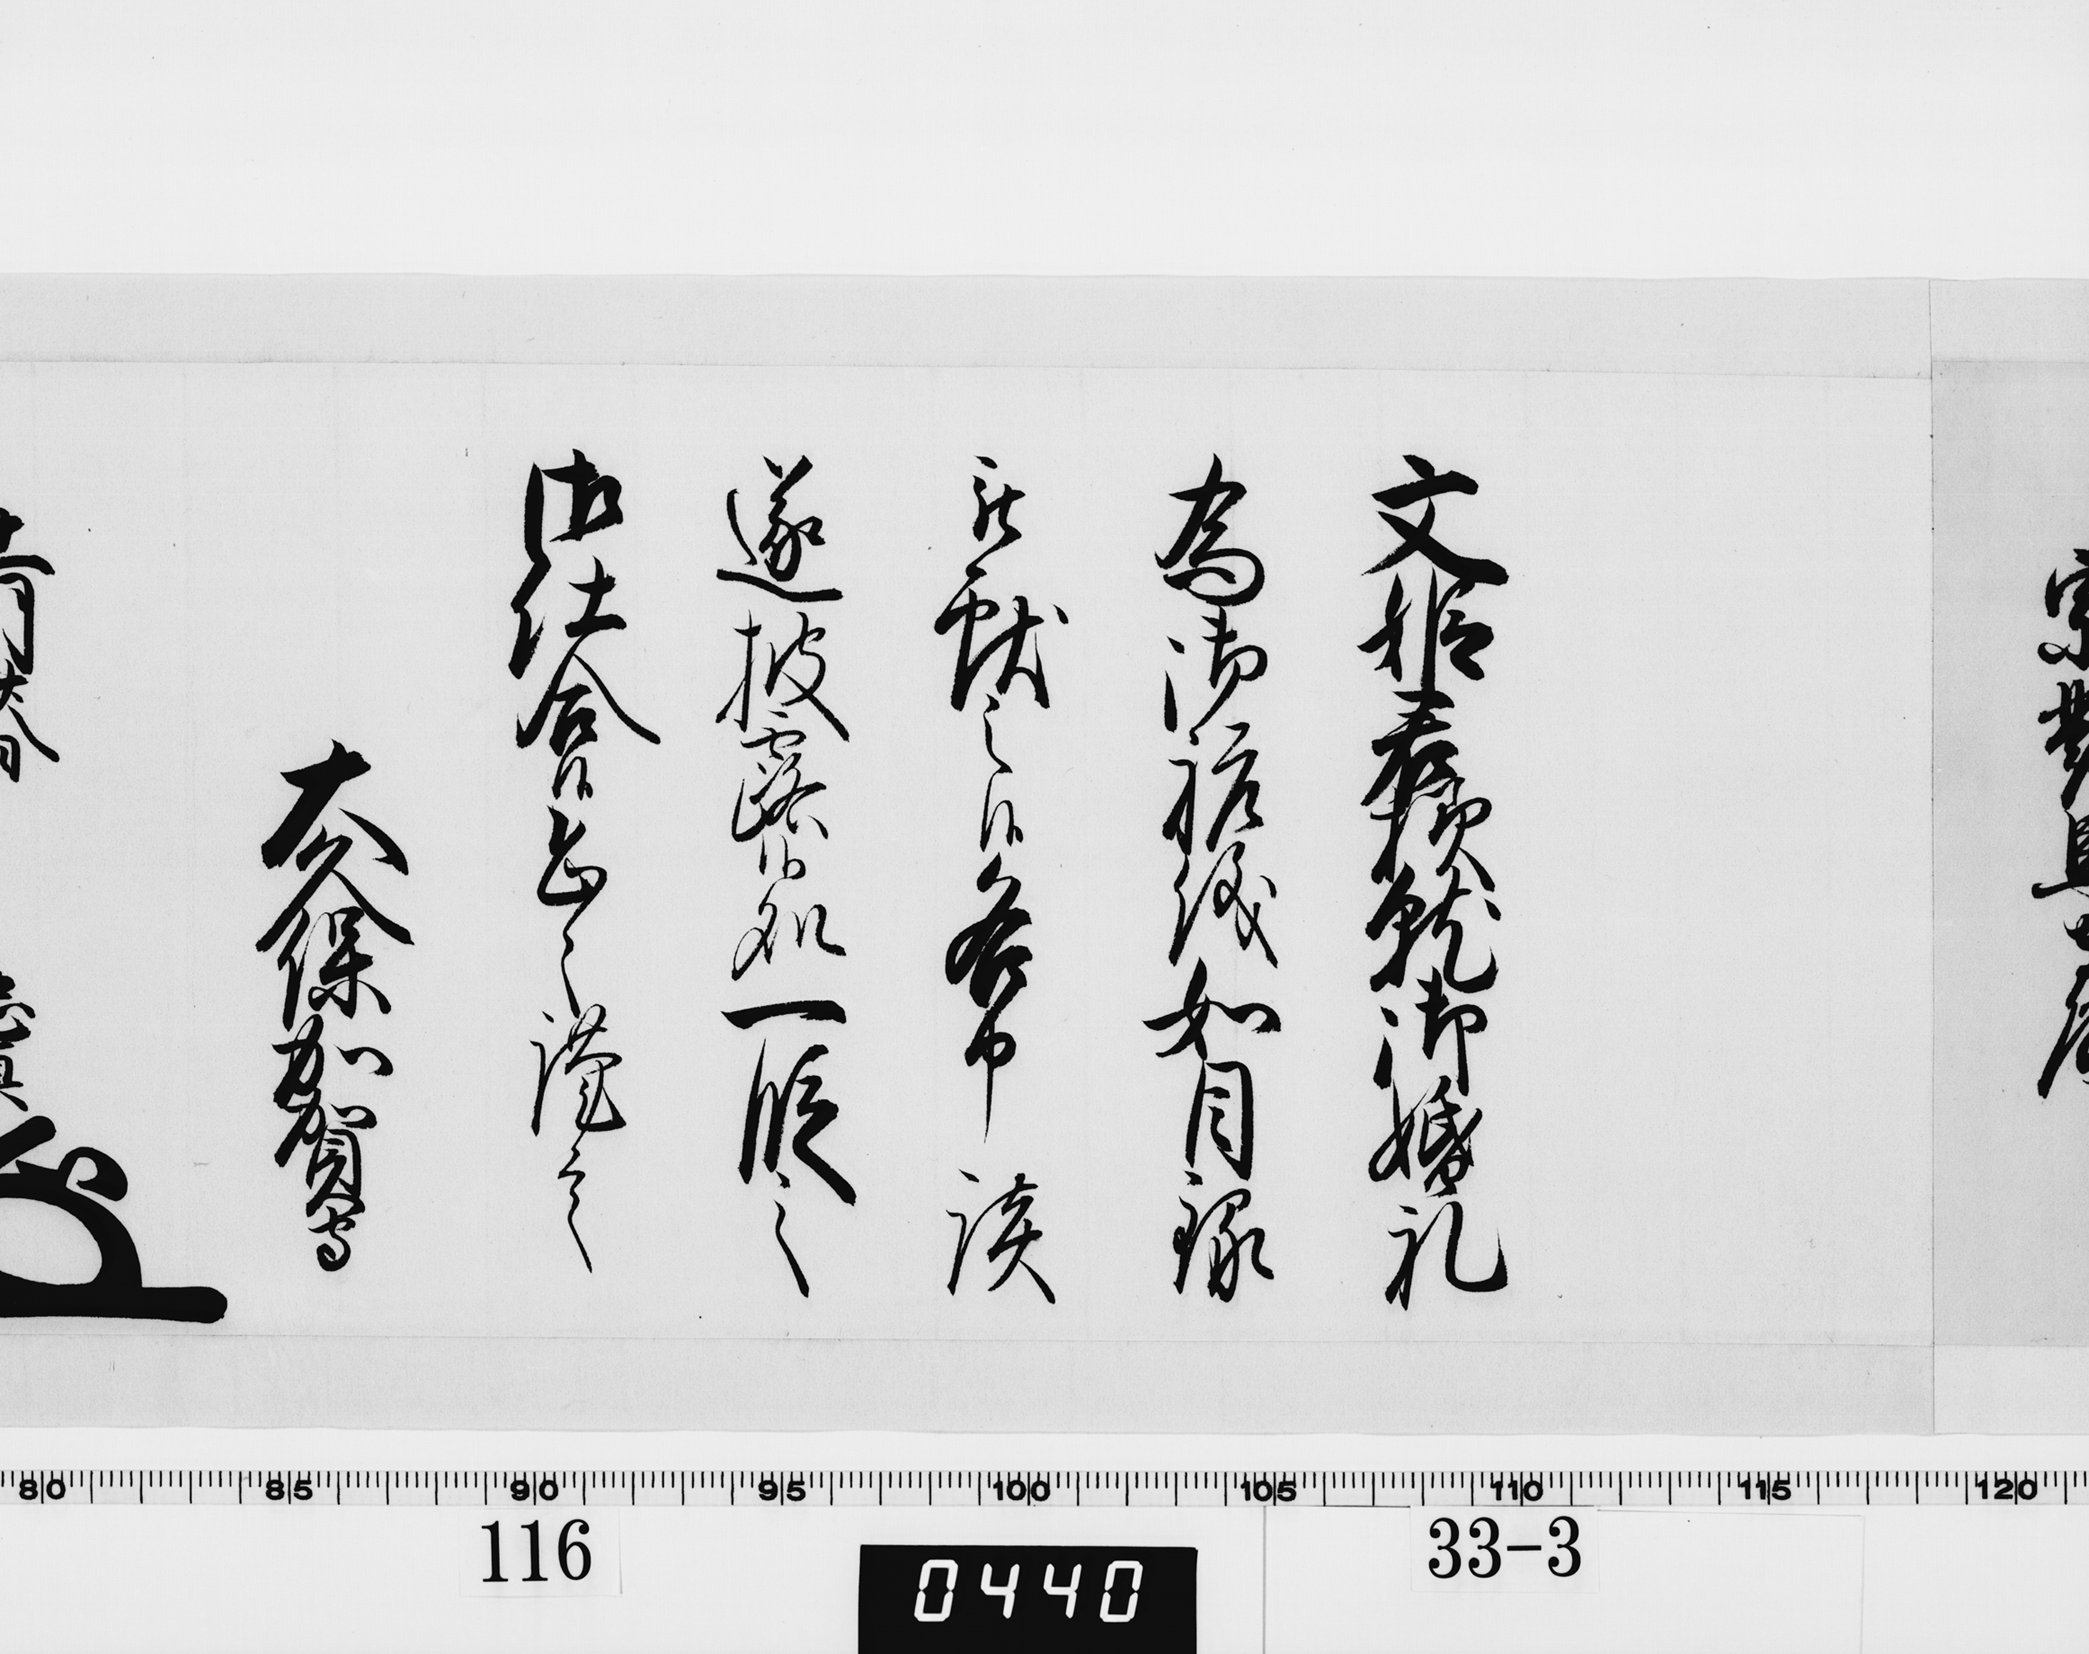 文姫君様就御婚礼
為御祝儀如目録
被献之候各申談
遂披露候処一段之
御仕合候恐々謹言
大久保加賀守
忠真
80 85 90 95 100 105 110 115 120
116
0440
33-3